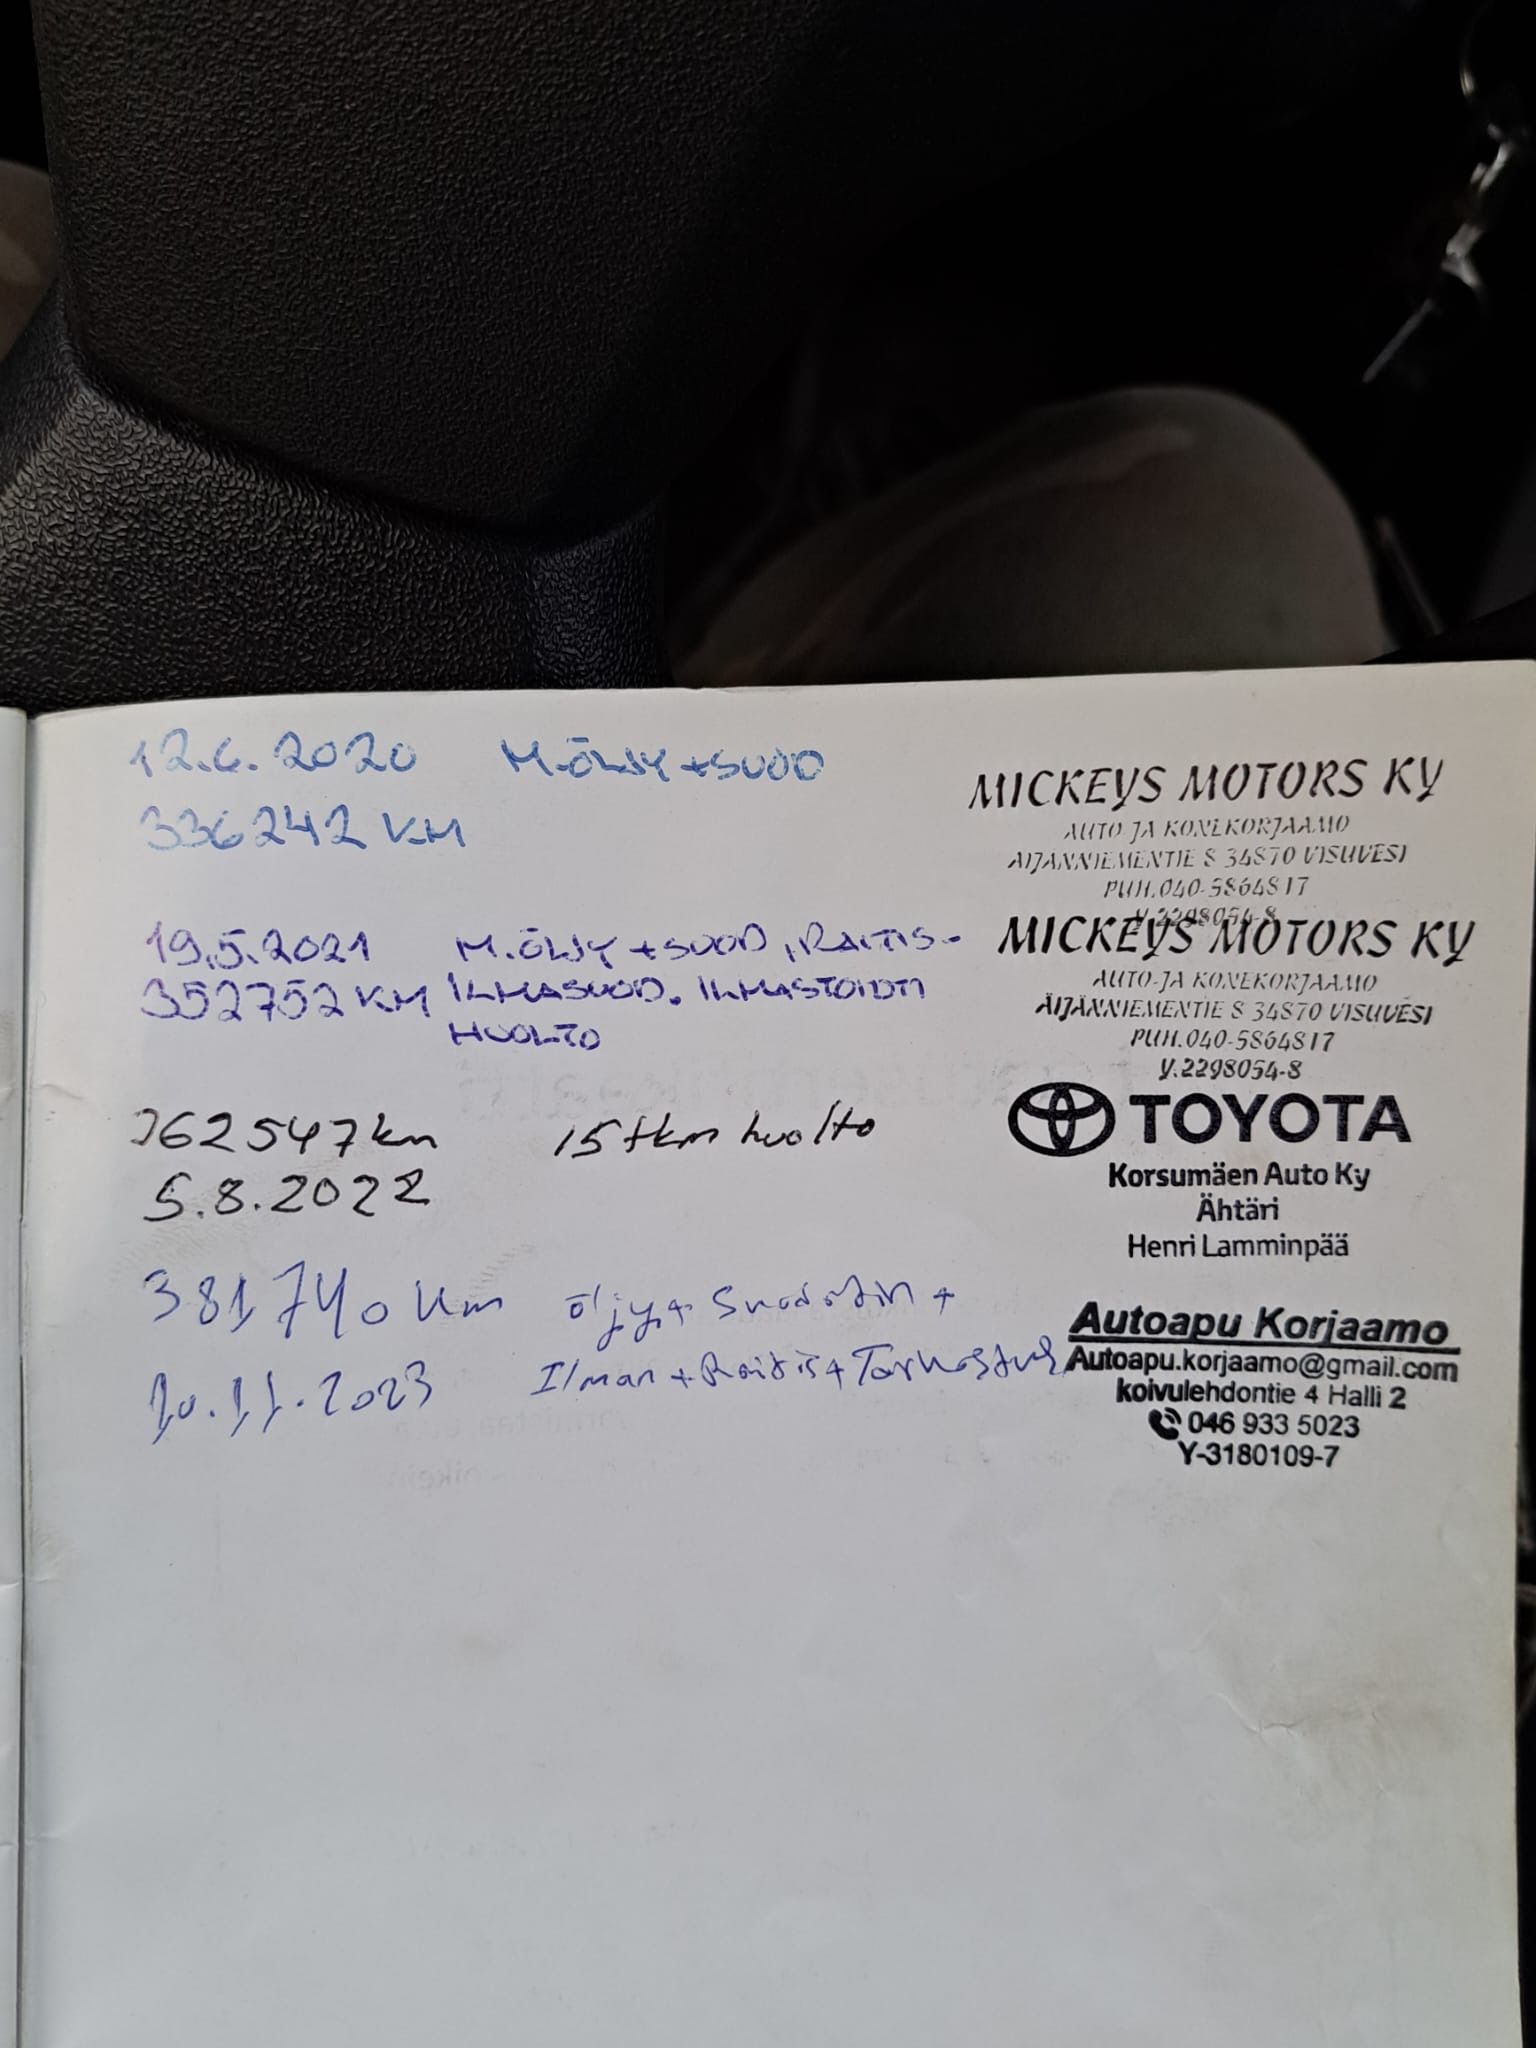 12.6.2020 M.ÖLJY+SUOD
336242 KM
MICKEYS MOTORS KY
AUTO JA KONEKORJAAMO
ÄIJÄNNIEMENTIE 8 34870 VISUVESI
PUH.040-5864817
Y.2298054-8
19.5.2021 M.ÖLJY+SUOD, RAITIS-
352752 KM ILMASUOD. ILMASTOIDTI
HUOLTO
MICKEYS MOTORS KY
AUTO-JA KONEKORJAAMO
ÄIJÄNNIEMENTIE 8 34870 VISUVESI
PUH.040-5864817
Y.2298054-8
362547km 15tkm huolto
5.8.2022
TOYOTA
Korsumäen Auto Ky
Ähtäri
Henri Lamminpää
381740 km öljy+Suodatin+
10.11.2023 Ilman+Raitis+Tarkastus
Autoapu Korjaamo
Autoapu.korjaamo@gmail.com
koivulehdontie 4 Halli 2
046 933 5023
Y-3180109-7